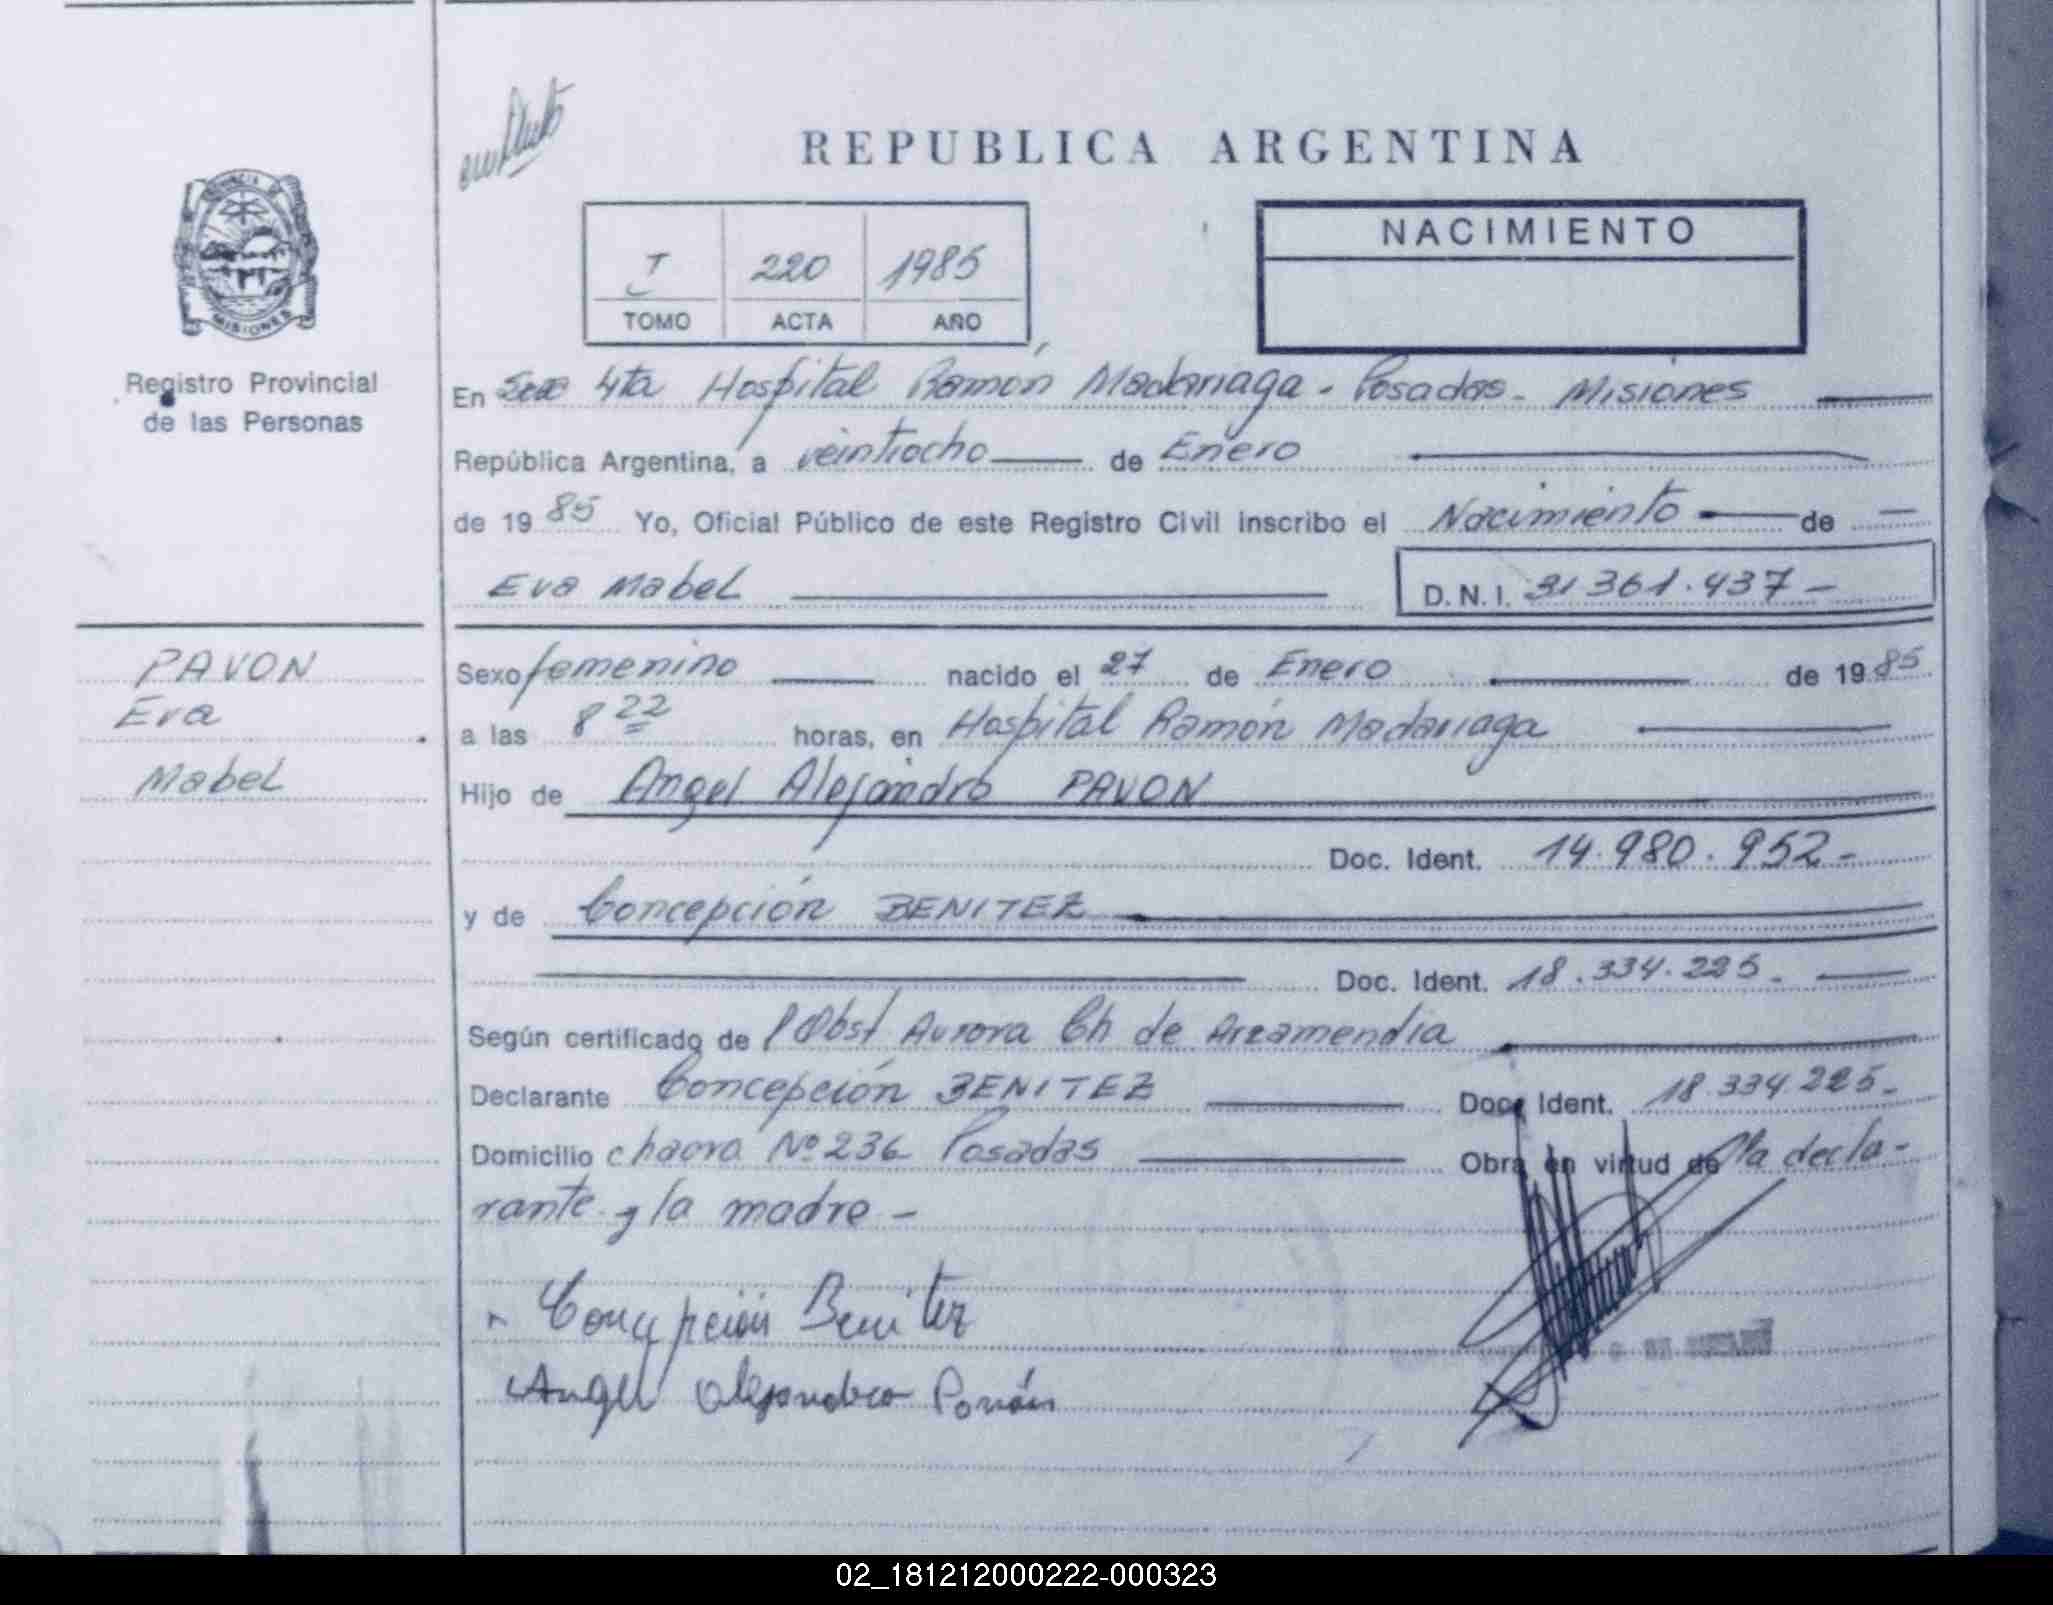 REPUBLICA ARGENTINA
I 220 1985
TOMO ACTA AÑO
NACIMIENTO
PROVINCIA DE
MISIONES
Registro Provincial
de las Personas
En Secc 4ta Hospital Ramón Madariaga - Posadas - Misiones
República Argentina, a veintiocho de Enero
de 1985 Yo, Oficial Público de este Registro Civil inscribo el Nacimiento de
Eva Mabel D.N.I. 31 361.437 -
PAVON
Eva
Mabel
Sexo femenino nacido el 27 de Enero de 1985
a las 8 22 horas, en Hospital Ramón Madariaga
Hijo de Angel Alejandro PAVON
Doc. Ident. 14.980.952-
y de Concepción BENITEZ
Doc. Ident. 18.334.225-
Según certificado de Obst Aurora Ch de Arzamendia
Declarante Concepción BENITEZ Doc. Ident. 18.334.225-
Domicilio chacra Nº 236 Posadas Obra en virtud de la decla-
rante y la madre -
Concepción Benitez
Angel Alejandro Pavón
02_181212000222-000323